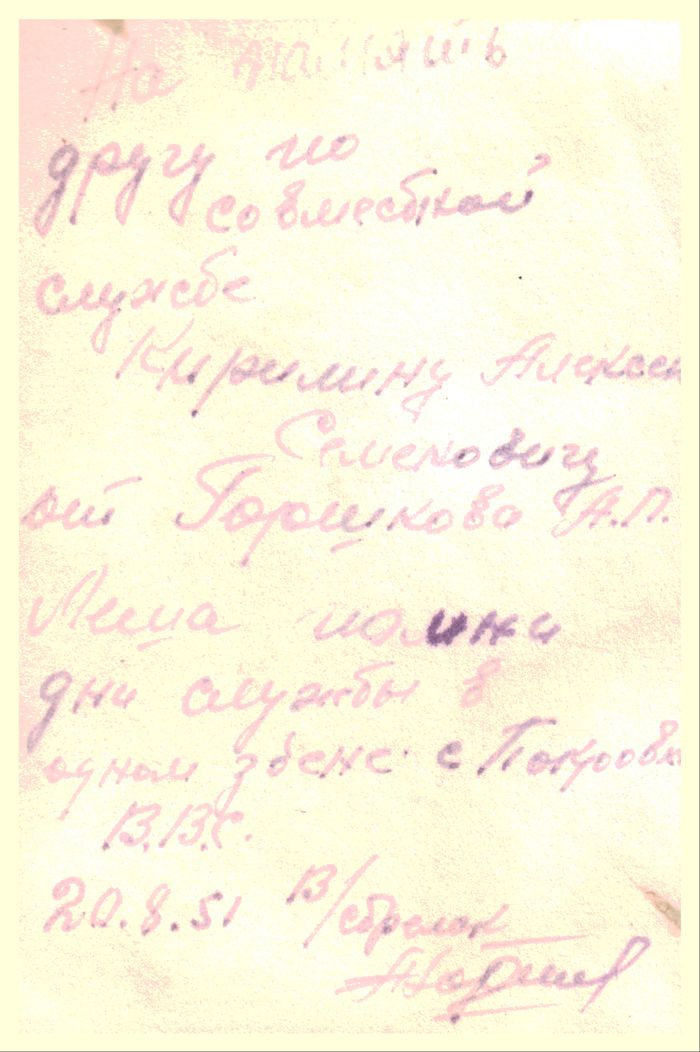 На память
другу по
совместной
службе
Кирилину Алексею
Семеновичу
от Горшкова А.П.
Леша помни
дни службы в
одном звене с Покровк
В.В.С.
20.8.51 В/
стрелок